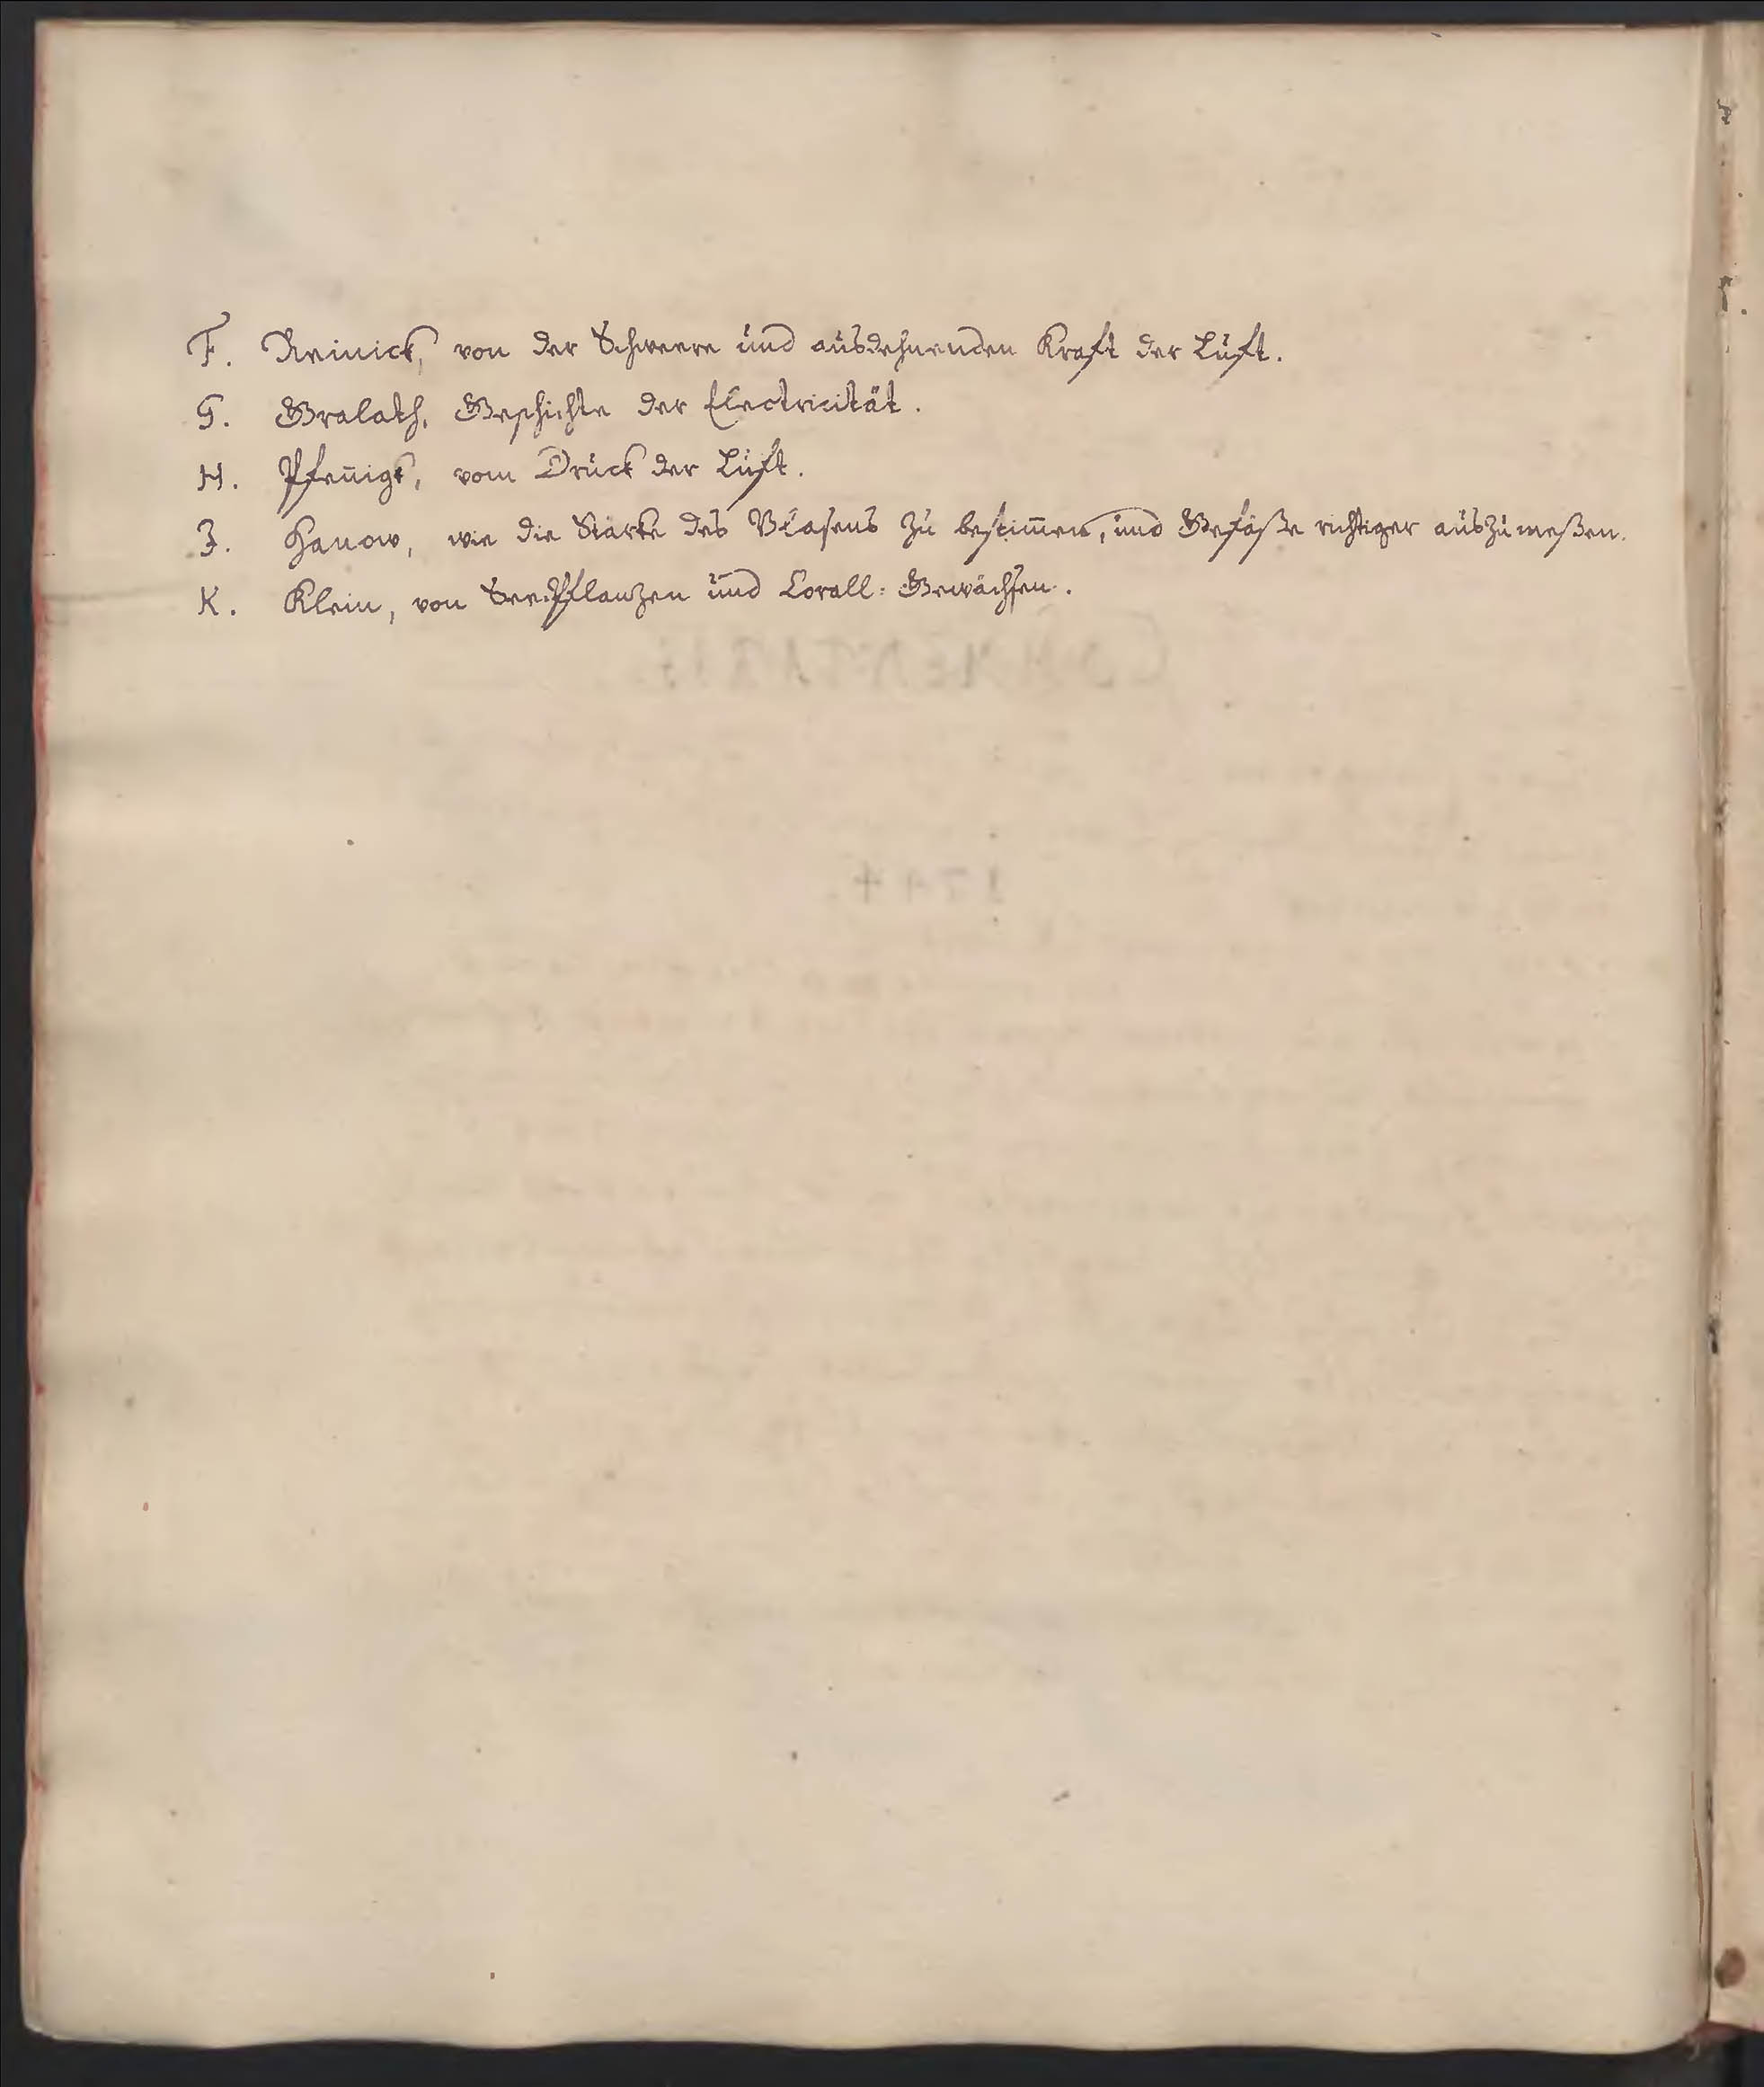 F. Reinick, von der Schweere und ausdehnenden Kraft der Luft.
G. Gralath, Geschichte der Electricität.
H. Pfen̅igk, vom Druck der Luft.
I. Hanow, wie die Stärke des Blasens zu bestim̅en, und Gefäße richtiger auszumeßen.
K. Klein, von See-Pflanzen und Corall-Gewächsen.
COMMENTARII.
1744